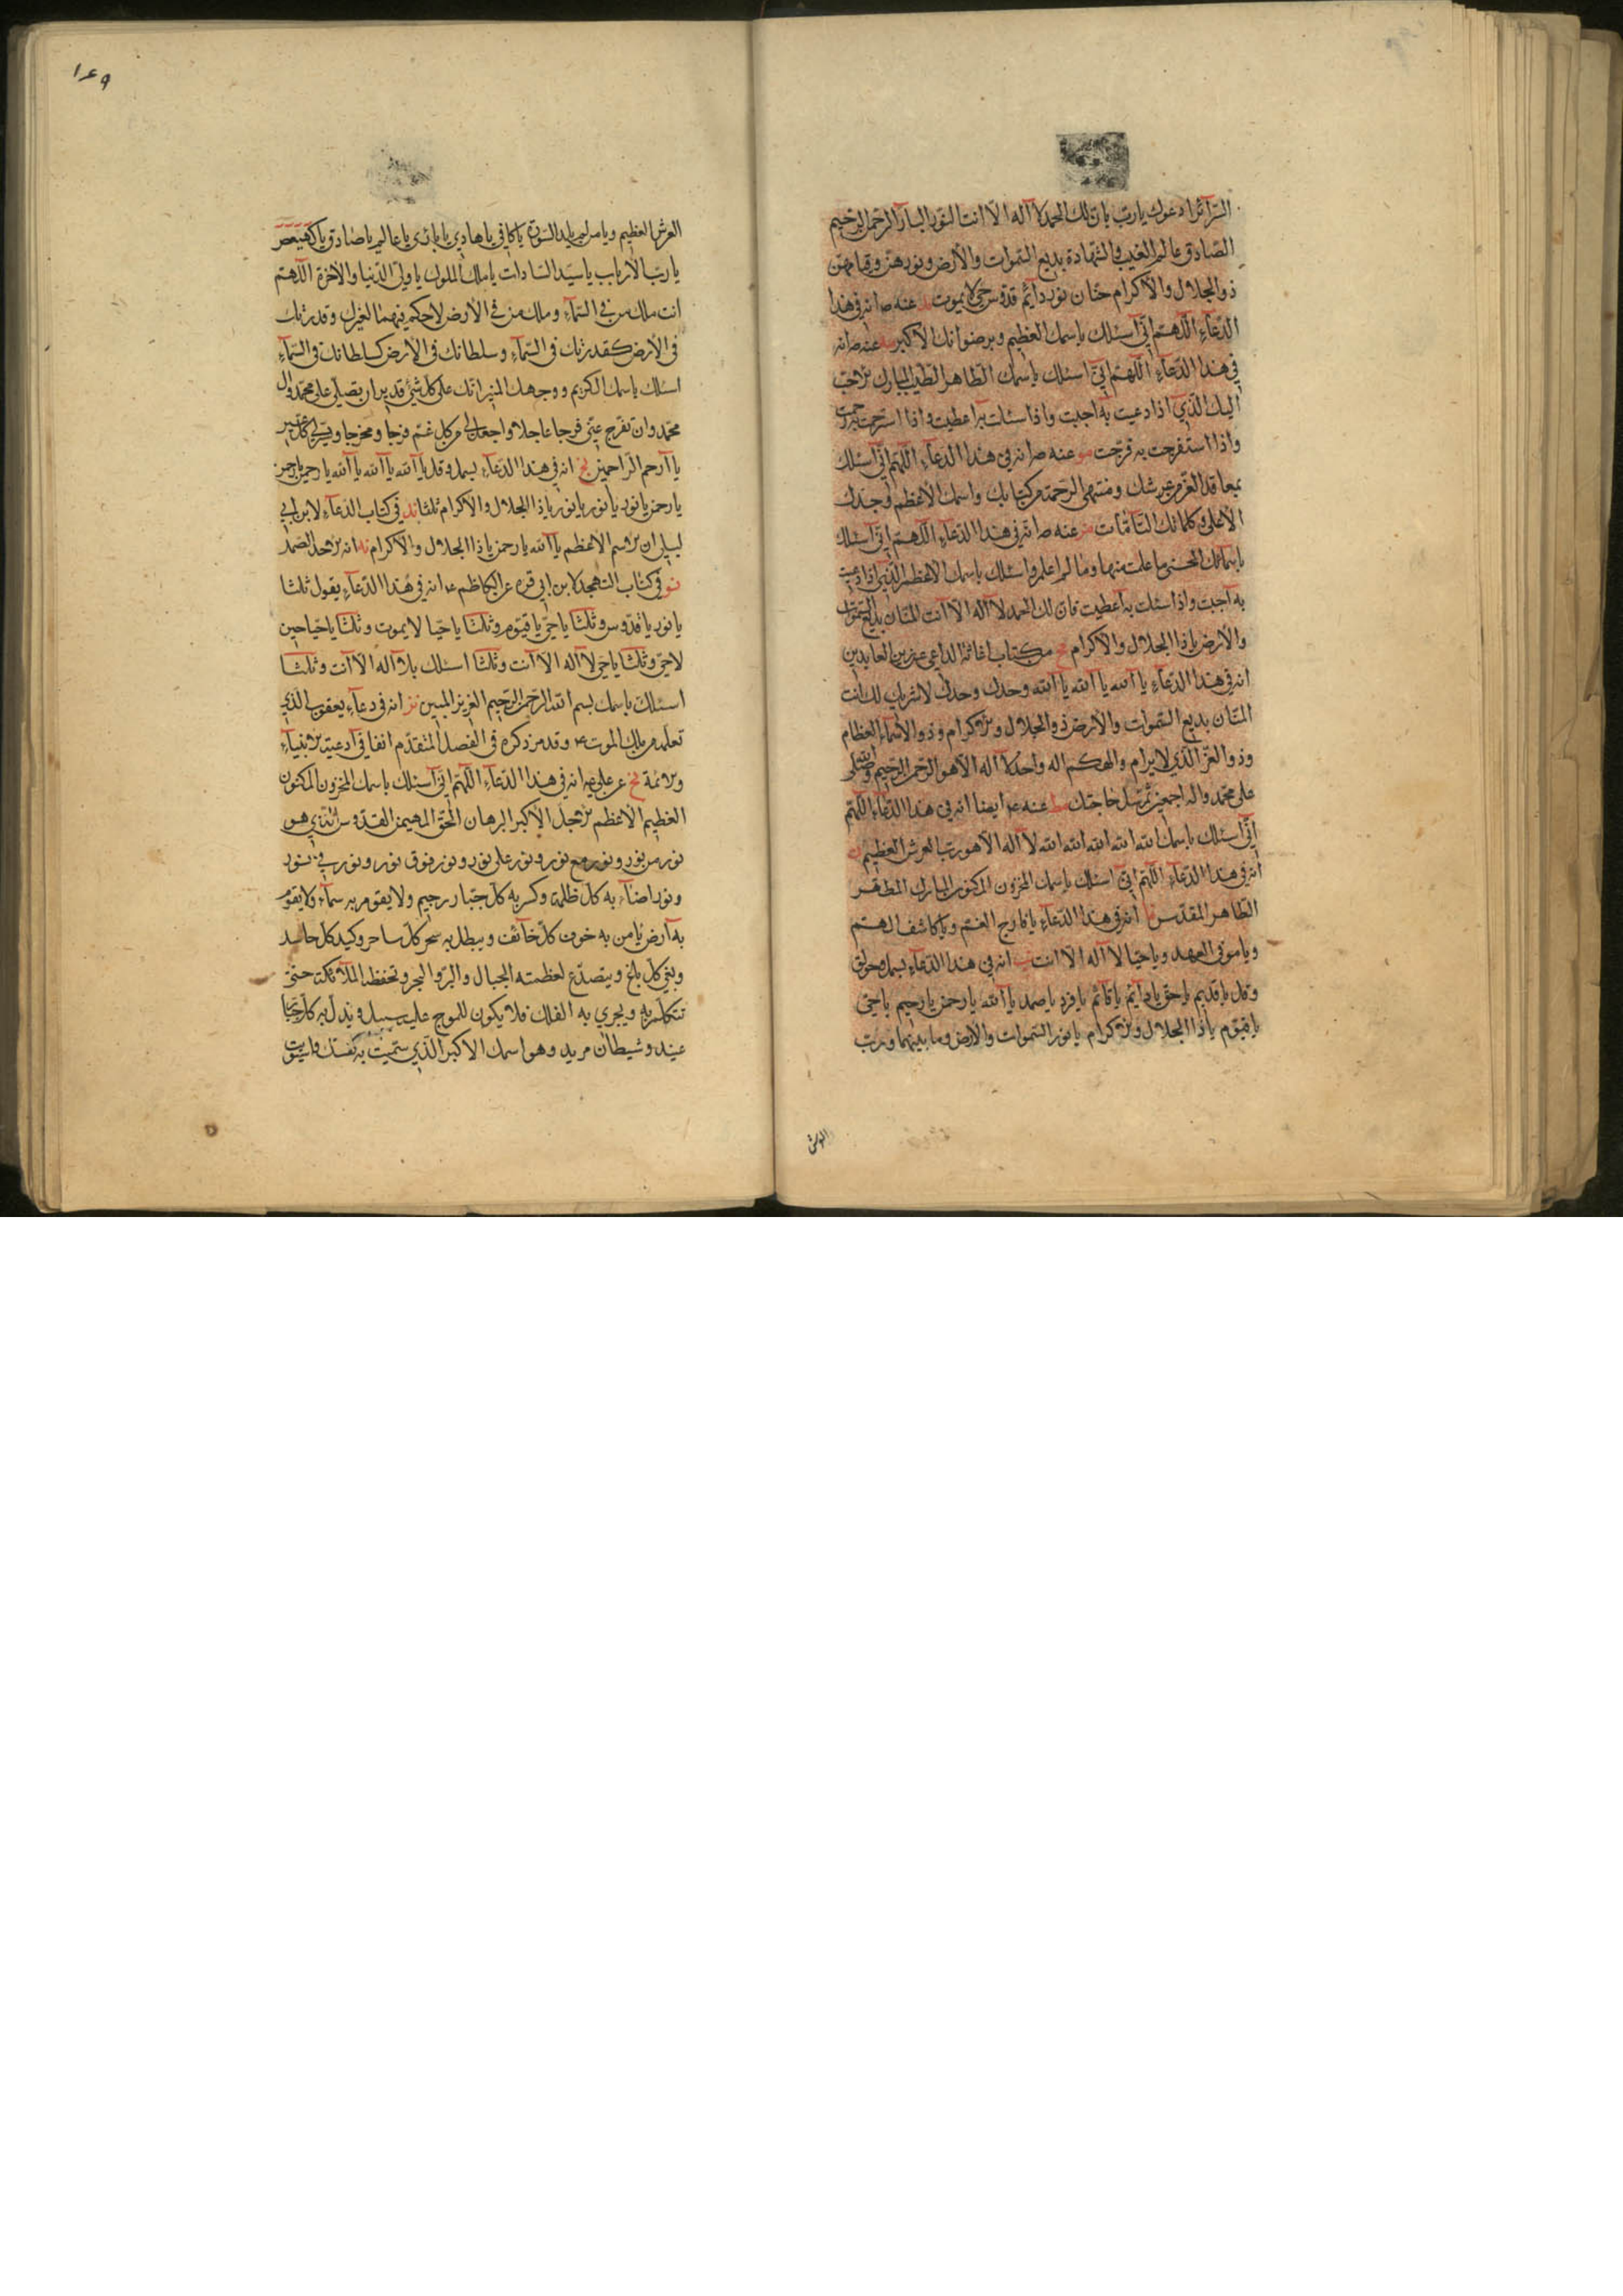 السّرائر ادعوك يا ربّ يا ربّ لك الحمد لا آله الّا انت النّور البارّ الرّحمن الرّحيم
الصّادق عالم الغيب والشّهادة بديع السّموات والأرض ونورهنّ وقيامهنّ
ذو الجلال والأكرام حنّان نور دآئم قدّوس حيّ لا يموت مد عنه ص انه في هذا
الدّعآء اللّهمّ انّي اسئلك باسمك العظيم وبرضوانك الأكبر مه عنه ص انه
في هذا الدّعآء اللّهمّ انّي اسئلك باسمك الطّاهر الطّيّب المبارك الاحبّ
اليك الّذي اذا دعيت به اجبت واذا سئلت به اعطيت واذا استرحمت به رحمت
واذا استفرجت به فرّجت مو عنه ص انه في هذا الدّعآء اللّهمّ انّي اسئلك
بمعاقد العزّ من عرشك ومنتهى الرّحمة من كتابك واسمك الأعظم وجدّك
الأعلى وكلماتك التّامّات مز عنه ص انّه في هذا الدّعآء اللّهمّ انّي اسئلك
باسمآئك الحسنى ما علمت منها وما لم اعلم واسئلك باسمك الأعظم الّذي اذا دعيت
به اجبت واذا سئلت به اعطيت فان لك الحمد لا آله الّا انت المنّان بديع السّموات
والأرض يا ذا الجلال والأكرام مح من كتاب اغاثة الداعي عن زين العابدين
انه في هذا الدّعآء يا آلله يا آلله يا آلله وحدك وحدك لا شريك لك انت
المنّان بديع السّموات والأرض ذو الجلال والاكرام وذو الأسمآء العظام
وذو العزّ الّذي لا يرام والهكم اله واحد لا آله الّا هو الرّحمن الرّحيم وصلّى الله
على محمّد واله اجمعين ثمّ تسل حاجتك مط عنه ع ايضا انه في هذا الدّعآء اللّهمّ
انّي اسئلك باسمك الله الله الله الله الله لا آله الّا هو ربّ العرش العظيم ن
انّه في هذا الدّعآء اللّهمّ انّي اسئلك باسمك المخزون المكنون المبارك المطهّر
الطّاهر المقدّس نا انّه في هذا الدّعآء يا فارج الغمّ ويا كاشف الهمّ
ويا موفي العهد ويا حيّا لا آله الّا انت نب انه في هذا الدّعآء بسمل وحولق
وقل يا قديم يا حيّ يا دآئم يا قآئم يا فرد يا صمد يا آلله يا رحمن يا رحيم يا حيّ
يا قيّوم يا ذا الجلال والاكرام يا نور السّموات والأرض وما بينهما وربّ
العرش
١٤٩
العرش العظيم ويا من يا كافي يا هادي يا بارئ يا عالم يا صادق يا كهيعص
يا ربّ الأرباب يا سيّد السّادات يا ملك الملوك يا وليّ الدّنيا والآخرة اللّهمّ
انت ملك من في السّمآء وملك من في الأرض لا حكم فيهما لغيرك وقدرتك
في الأرض كقدرتك في السّمآء وسلطانك في الأرض كسلطانك في السّمآء
اسئلك باسمك الكريم ووجهك المنير انّك على كلّ شيئ قدير ان تصلّي على محمّد وال
محمّد وان تفرّج عنّي فرجا عاجلا واجعل لي من كلّ غمّ فرجا ومخرجا ويسّر لي كلّ عسير
يا آرحم الرّاحمين نج انه في هذا الدّعآء بسمل وقل يا آلله يا آلله يا آلله يا رحمن يا رحمن
يا رحمن يا نور يا نور يا نور يا ذا الجلال والاكرام ثلثا ند في كتاب الدّعآء لابن ابي
ليلى ان الاسم الأعظم يا آلله يا رحمن يا ذا الجلال والاكرام نه انه الاحد الصّمد
نو في كتاب التهجد لابن ابي قره عن الكاظم ع انه في هذا الدّعآء يقول ثلثا
يا نور يا قدّوس وثلثا يا حيّ يا قيّوم وثلثا يا حيّا لا يموت وثلثا يا حيّا حين
لا حيّ وثلثا يا حيّ لا آله الّا آنت وثلثا اسئلك بلا آله الّا آنت وثلثا
اسئلك باسمك بسم الله الرّحمن الرّحيم العزيز المبين نز انه في دعآء يعقوب الّذي
تعلّمه من ملك الموت ع وقد مرّ ذكره في الفصل المتقدّم انفا في آدعية الانبيآء
والائمة نح عن علي ع انه في هذا الدّعآء اللّهمّ انّي اسئلك باسمك المخزون المكنون
العظيم الأعظم الاجلّ الأكبر البرهان الحقّ المهيمن القدّوس الّذي هو
نور من نور ونور مع نور ونور على نور ونور فوق نور ونور في نور
ونور اضآء به كلّ ظلمة وكسر به كلّ جبّار رجيم ولا يقوم به سمآء ولا يقوم
به آرض يأمن به خوف كلّ خآئف ويبطل به سحر كلّ ساحر وكيد كلّ حاسد
وبغي كلّ باغ ويتصدّع لعظمته الجبال والبرّ والبحر وتحفظه الملآئكة حتّى
تتكلّم به ويجري به الفلك فلا يكون للموج عليه سبيل ويذلّ به كلّ جبّار
عنيد وشيطان مريد وهو اسمك الأكبر الّذي سمّيت به نفسك واستويت